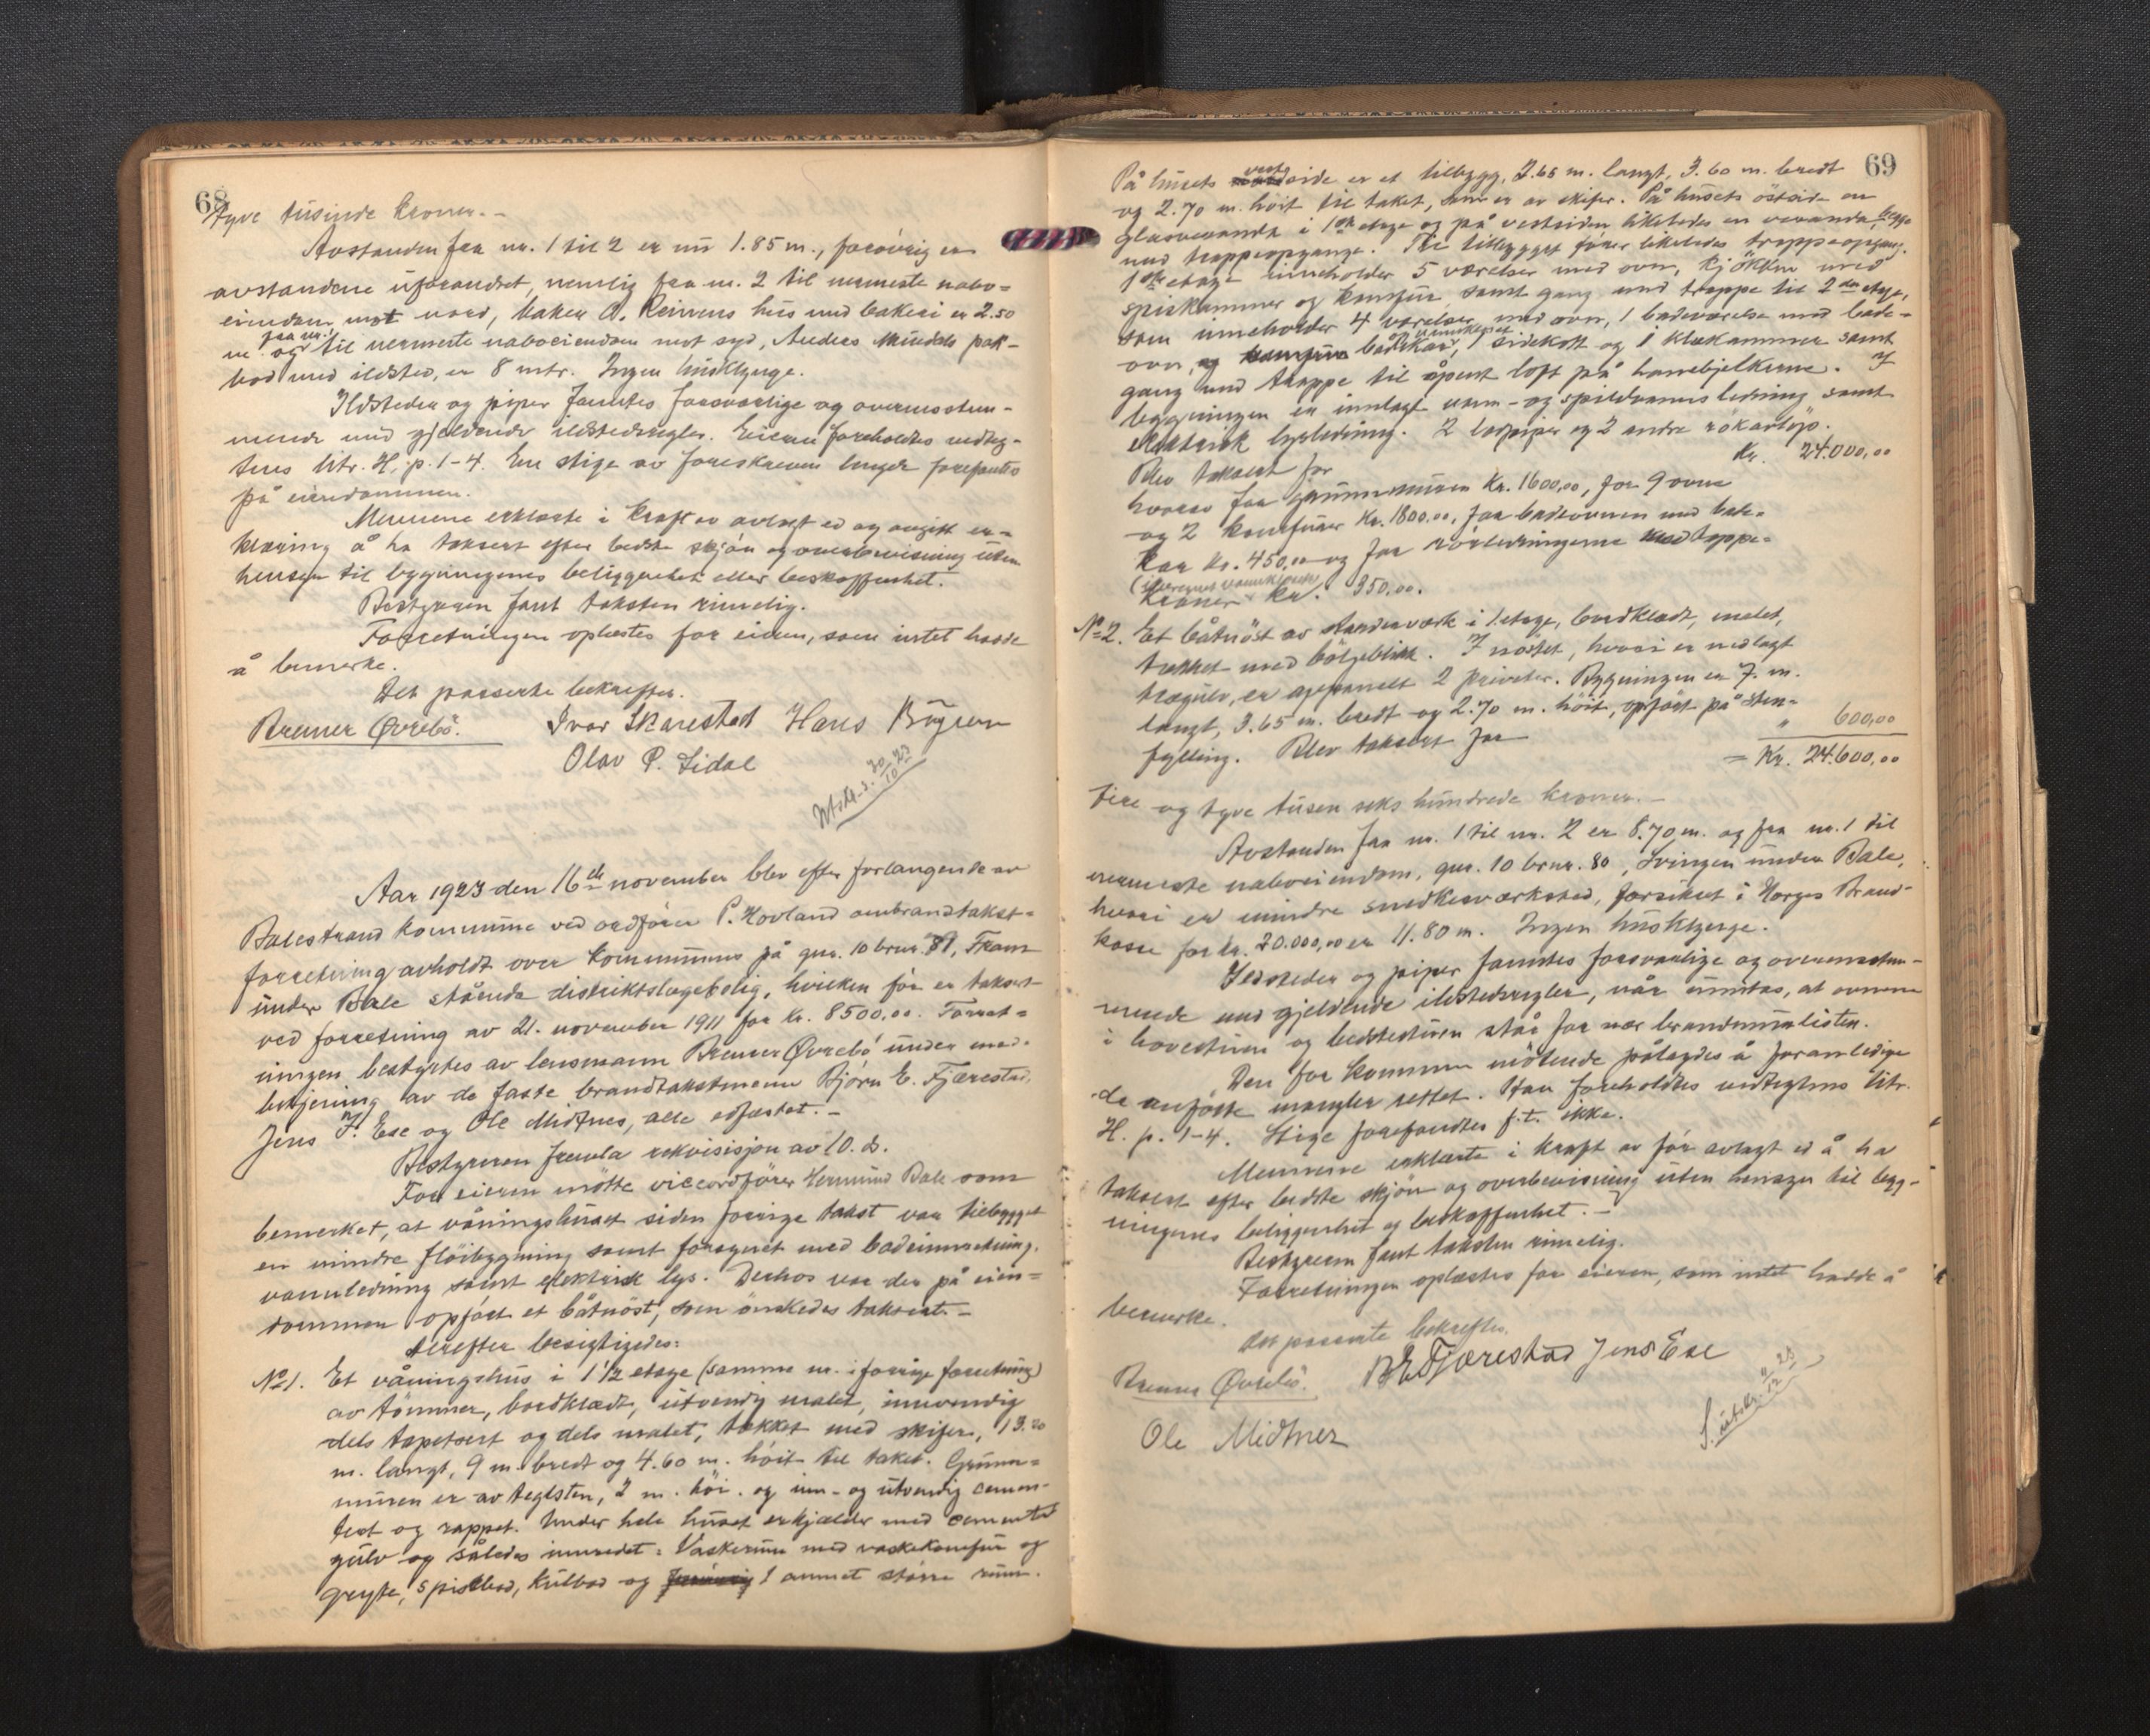 68
tyve tusinde kroner.-
Avstanden fra nr. 1 til 2 er nu 1.85 m., forövrig er
avstandene uforandret, nemlig fra nr. 2 til nærmeste nabo-
eiendom mot nord, baker O. Reinens hus med bakeri er 2.50
m. og fra nr. 1 til nærmeste naboeiendom mot syd, Anders Mundals pak-
bod med ildsted, er 8 mtr. Ingen husklynge.
Ildsteder og piper fantes forsvarlige og overensstem-
mende med gjeldende ildstedsregler. Eieren foreholdtes vedteg-
tens litr. H, p. 1-4. En stige av foreskreven lengde forefantes
på eiendommen.
Mennene erklærte i kraft av avlagt ed og avgitt er-
klæring å ha taksert efter bedste skjön og overbevisning uten
hensyn til bygningenes beliggenhet eller beskaffenhet.
Bestyreren fant taksten rimelig.
Forretningen oplæstes for eieren, som intet hadde
å bemerke.
Det passerte bekreftes.
Bremer Øvrebö. Ivar Skarestad Hans Bøyum
Olav P. Lidal
Utskr. s. 30/10 23
Aar 1923 den 16de november blev efter forlangende av
Balestrand kommune ved ordförer P. Hovland ombrandtakst-
forretning avholdt over kommunens på gnr. 10 brnr. 81, Fram
under Bale stående distriktslægebolig, hvilken för er taksert
ved forretning av 21. november 1911 for kr. 8500,00. Forret-
ningen bestyrtes av lensmann Bremer Øvrebö under med-
betjening av de faste brandtakstmenn Björn E. Fjærestad,
Jens J. Ese og Ole Midtnes, alle edfæstet.-
Bestyreren fremla rekvisisjon av 10. ds.
For eieren mötte viceordförer Hermund Bale som
bemerket, at våningshuset siden forrige takst var tilbygget
en mindre flöibygning samt forsynet med badeinnretning,
vannledning samt elektrisk lys. Derhos var der på eien-
dommen opfört et båtnöst, som önskedes taksert.-
Derefter besigtigedes:
No 1. Et våningshus i 1 1/2 etage (samme nr. i forrige forretning)
av tömmer, bordklædt, utvendig malet, innvendig
dels tapetsert og dels malet, tækket med skifer, 13.20
m. langt, 9 m. bredt og 4.60 m. höit til taket. Grunn-
muren er av teglsten, 2 m. höi. og inn- og utvendig cemen-
tert og rappet. Under hele huset er kjælder med cementert
gulv og således innredet: Vaskerum med vaskekomfur og
gryte, spisebod, kulbod og 1 annet större rum.
69
På husets vestside er et tilbygg, 2.65 m. langt, 3.60 m. bredt
og 2.70 m. höit til taket, som er av skifer. På husets östside en
glasveranda i 1ste etage og på vestsiden likeledes en veranda, begge
med trappeopgange. Til tilbygget förer likeledes trappeopgang.
1ste etage inneholder 5 værelser med ovn, kjökken med
spiskammer og komfur samt gang med trappe til 2den etage,
som inneholder 4 værelser med ovn, 1 badeværelse med bade-
ovn, badekar, 1 sidekott og 1 klækammer samt
gang med trappe til åpent loft på hanebjelkerne. I
bygningen er innlagt vann- og spildvannsledning samt
elektrisk lysledning. 2 lodpiper og 2 andre rökavlöp.
Blev taksert for Kr. 24.000,00
hvorav for grunnmuren Kr. 1600,00, for 9 ovne
og 2 komfurer Kr. 1800.00, for badeovnen med bade-
kar kr. 450,00 og for rörledningerne med tappe-
kraner kr. 350,00.
No 2. Et båtnöst av stenderværk i 1 etage, bordklædt, malet,
tækket med bölgeblikk. I nöstet, hvori er nedlagt
trægulv, er avpanelt 2 priveter. Bygningen er 7. m.
langt, 3.65 m. bredt og 2.70 m. höit, opfört på sten-
fylling. Blev taksert for " 600,00
= Kr. 24.600,00
Fire og tyve tusen seks hundrede kroner.-
Avstanden fra nr. 1 til nr. 2 er 8.70 m. og fra nr. 1 til
nærmeste naboeiendom, gnr. 10 brnr. 80, Svingen under Bale,
hvori er mindre snedkerværksted, forsikret i Norges Brand-
kasse for kr. 20.000,00 er 11.80 m. Ingen husklynge.
Ildsteder og piper fantes forsvarlige og overensstem-
mende med gjeldende ildstedsregler, når unntas, at ovnene
i hovedstuen og bedstestuen står for nær brandmurlisten.
Den for kommunen mötende pålagdes å foranledige
de anförte mangler rettet. Han foreholdtes vedtegtens litr.
H. p. 1-4. Stige forefandtes f.t. ikke.
Mennene erklærte i kraft av för avlagt ed å ha
taksert efter bedste skjön og overbevisning uten hensyn til byg-
ningenes beliggenhet og beskaffenhet.-
Bestyreren fant taksten rimelig.
Forretningen oplæstes for eieren, som intet hadde å
bemerke.
Det passerte bekreftes.
Bremer Øvrebö. B E Fjærestad Jens Ese
Ole Midtnes
S. utskr. 4/12 23